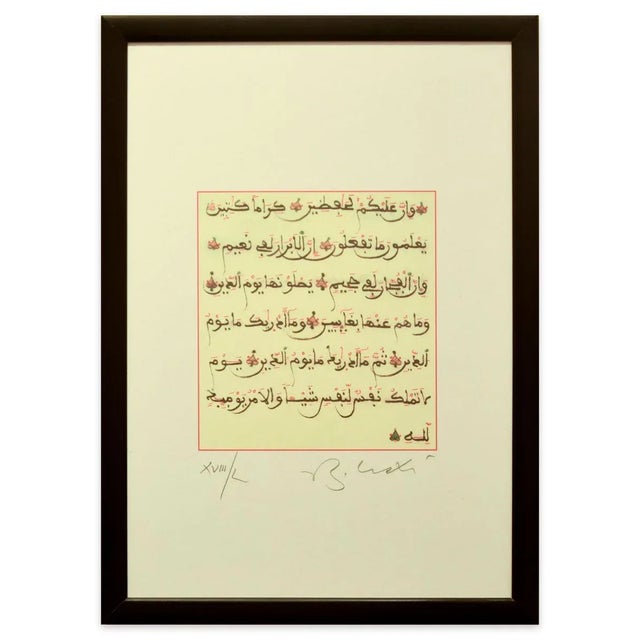 وإن عليكم لحفظين كراما كتبين
يعلمون ما تفعلون إن الابرار لفي نعيم
وإن الفجار لفي جحيم يصلونها يوم الدين
وما هم عنها بغايبين وما أدريك ما يوم
الدين ثم ما أدريك ما يوم الدين يوم
لا تملك نفس لنفس شيئا والامر يوميذ
لله
XVIII/L